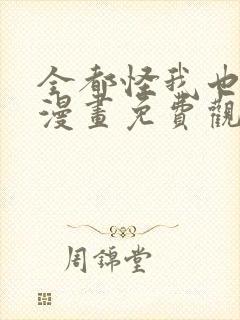 全都怪我也
漫畫免費觀
周錦堂